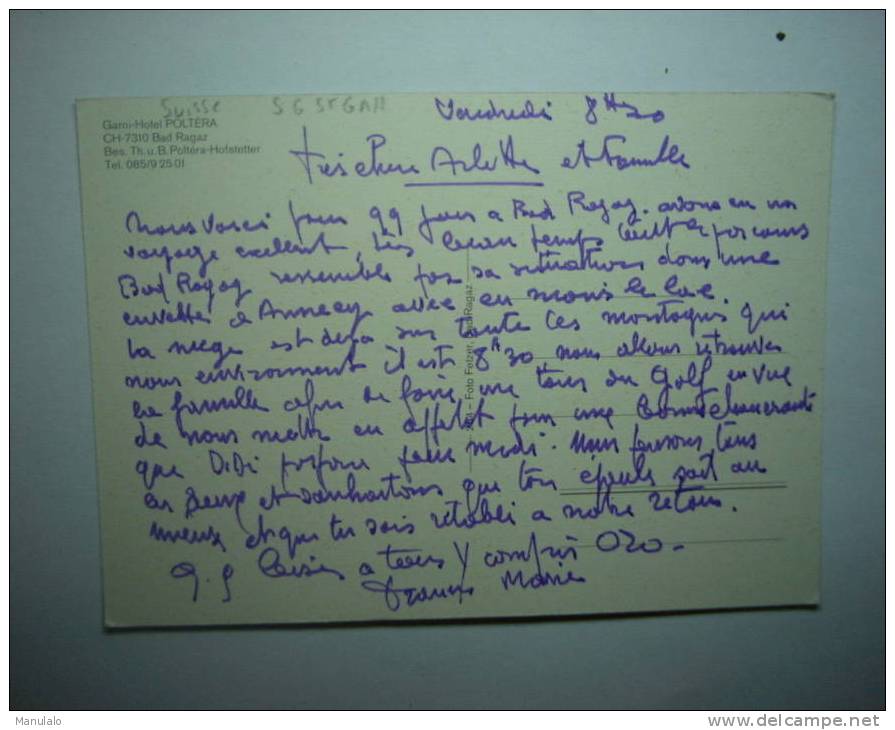 Suisse S G St GALL
Garni-Hotel POLTÉRA
CH-7310 Bad Ragaz
Bes. Th. u. B. Poltéra-Hofstetter
Tel. 085/9 25 01
Vendredi 8H 30
très chère Arlette et famille
Nous voici pour qq jours a Bad Ragaz. avons eu un
voyage excellent, très beau temps tout le parcours
Bad Ragaz ressemble par sa situation dans une
cuvette a Annecy avec en moins le lac.
la neige est deja sur toute les montagnes qui
nous environnent il est 8h30 nous allons retrouver
la famille afin de faire un tour du Golf en vue
de nous mettre en appétit pour une bonne choucroute
que DiDi prépare pour midi. Nous pensons tous
les deux et souhaitons que ton épaule soit au
mieux et que tu sois rétabli a notre retour.
q.q baisers a tous y compris Ozo.
Marie
204 – Foto Fetzer, Bad Ragaz
Manulalo
www.delcampe.net